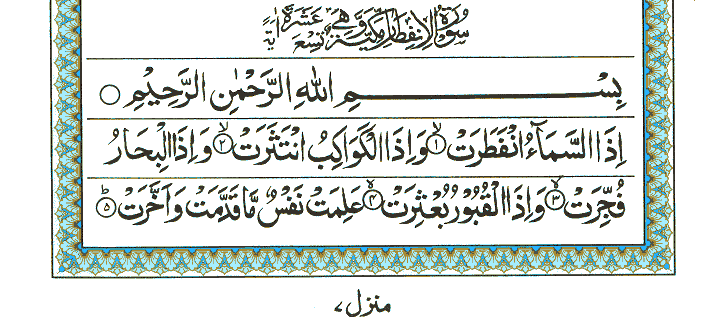 سُوْرَةُ الْاِنْفِطَارِ مَكِّيَّةٌ وَّهِىَ تِسْعَ عَشْرَةَ اٰيَةً
بِسْمِ اللهِ الرَّحْمٰنِ الرَّحِيْمِ ○
اِذَا السَّمَآءُ انْفَطَرَتْ ۙ﴿۱﴾ وَاِذَا الْكَوَاكِبُ انْتَثَرَتْ ۙ﴿۲﴾ وَاِذَا الْبِحَارُ
فُجِّرَتْ ۙ﴿۳﴾ وَاِذَا الْقُبُوْرُ بُعْثِرَتْ ۙ﴿۴﴾ عَلِمَتْ نَفْسٌ مَّا قَدَّمَتْ وَاَخَّرَتْ ؕ﴿۵﴾
منزل ۷